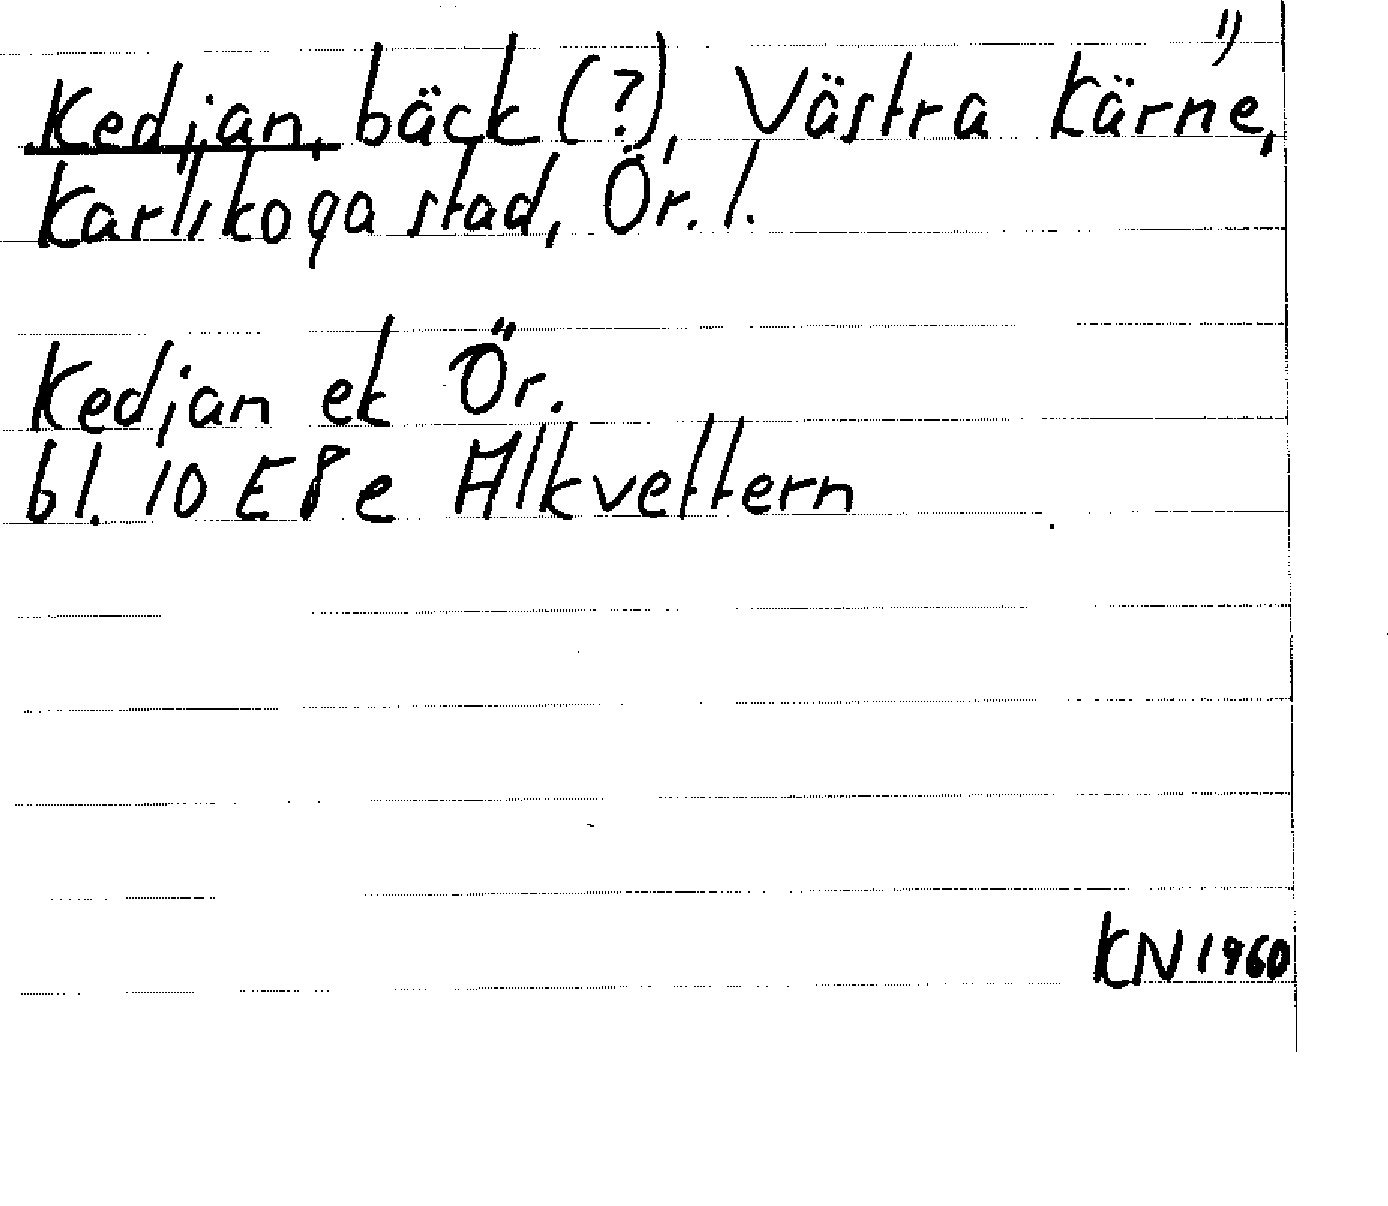 Kedjan, bäck (?), Västra Kärne, 1)
Karlskoga stad, Ör. l.
Kedjan ek Ör.
bl. 10 E 8 e Alkvettern
KN 1960